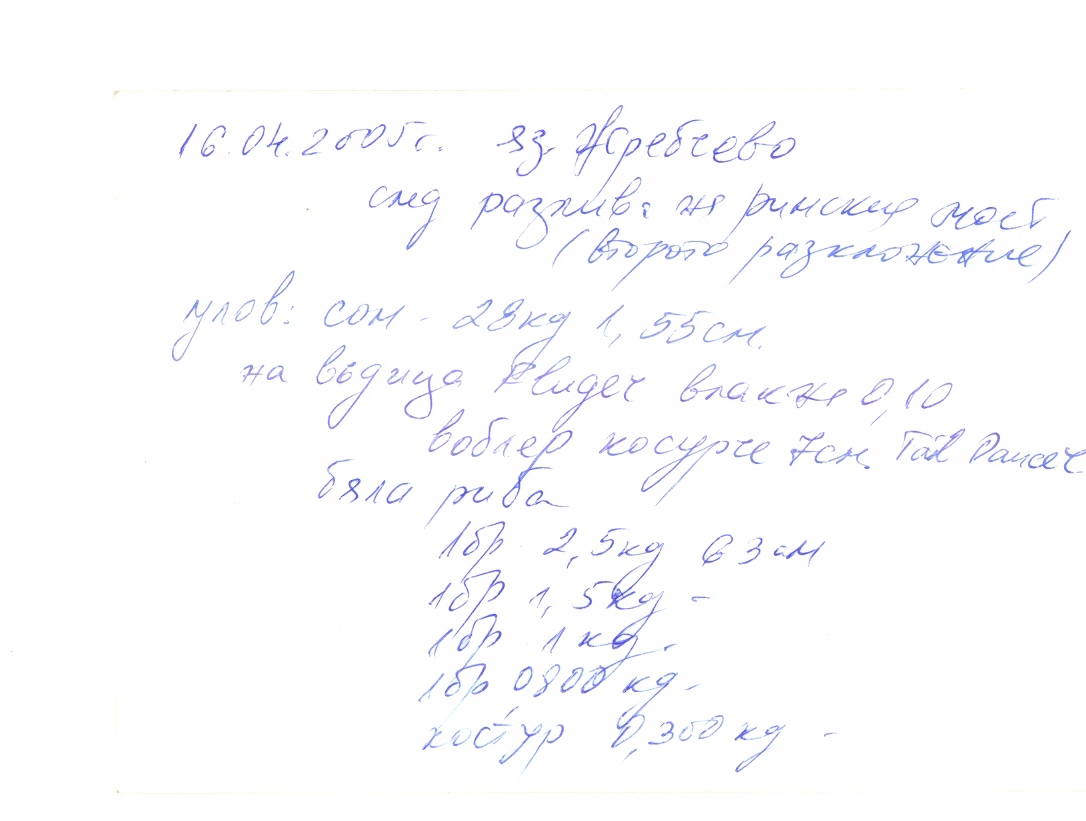 16.04.2005г. яз. Жребчево
след разлив: на римския мост
(второто разклонение)
улов: сом - 28кг 1,55см.
на въдица влакно 0,10
воблер косурче 7см. Tail Dancer
бяла риба
1бр 2,5кг 63см
1бр 1,5кг -
1бр 1кг.
1бр 0800 кг -
костур 0,300 кг -